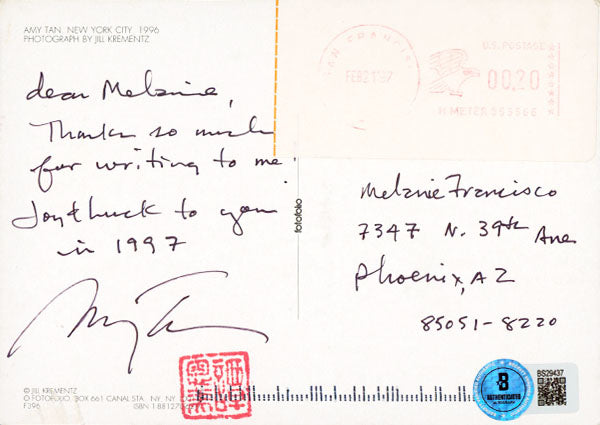 AMY TAN, NEW YORK CITY 1996
PHOTOGRAPH BY JILL KREMENTZ
dear Melanie,
Thanks so much
for writing to me.
Joy & luck to you
in 1997
Amy Tan
© JILL KREMENTZ
© FOTOFOLIO BOX 661 CANAL STA. NY, NY
F396
ISBN 1-881270
fotofolio
SAN FRANCIS
FEB 21 '97
U.S. POSTAGE
00.20
H METER 555566
Melanie Francisco
7347 N. 39th Ave
Phoenix, AZ
85051-8220
B
AUTHENTICATED
BS29437